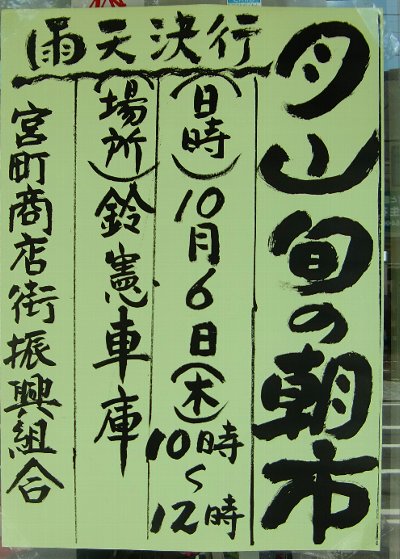 雨天決行
月山旬の朝市
(日時)10月6日(木)
10時~12時
(場所)鈴憲車庫
宮町商店街振興組合